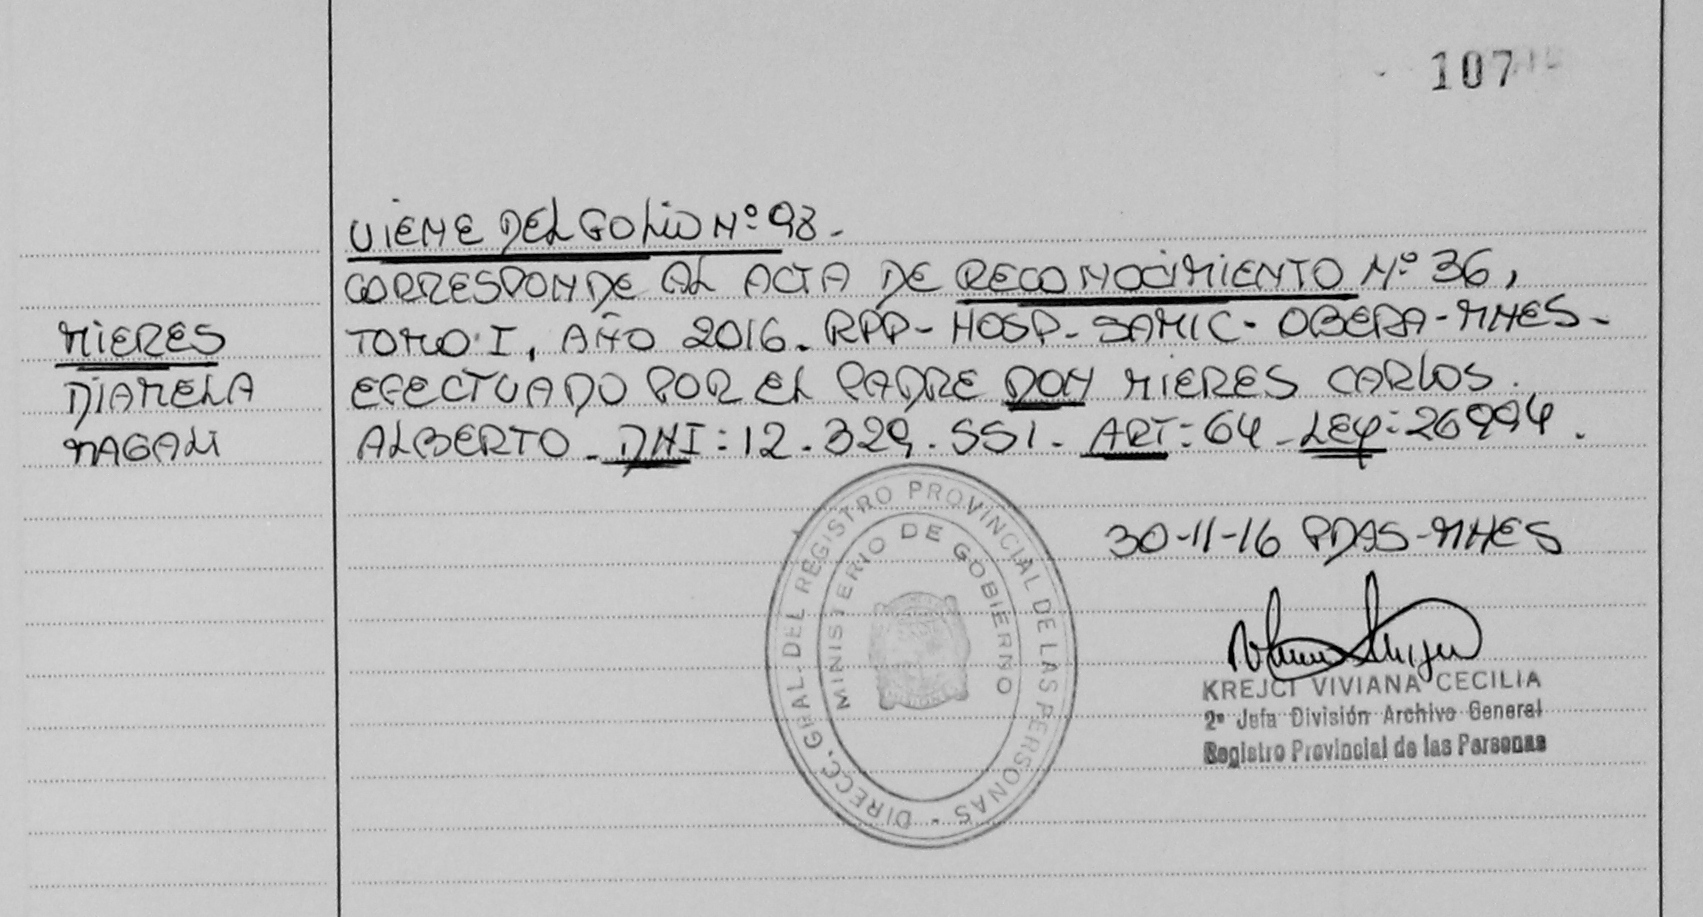 107
VIENE DEL FOLIO Nº 98.-
CORRESPONDE AL ACTA DE RECONOCIMIENTO Nº 36,
MIERES
TOMO I, AÑO 2016. RPP- HOSP- SAMIC- OBERA-MNES-
DIAMELA
EFECTUADO POR EL PADRE DON MIERES CARLOS.
MAGALI
ALBERTO - DNI: 12.329.551 - ART: 64 - LEY: 26994.
30-11-16 PDAS-MNES
DIRECC. GRAL. DEL REGISTRO PROVINCIAL DE LAS PERSONAS -
MINISTERIO DE GOBIERNO
KREJCI VIVIANA CECILIA
2ª Jefa División Archivo General
Registro Provincial de las Personas